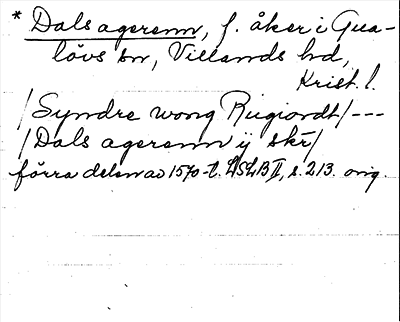 * Dals agerenn, f. åker i Gua-
lövs sn, Villands hd,
Krist. l.
/Syndre wong Rugiordt/---
/Dals agerenn ij skr/
förra delen av 1570-t. LSLB II, s. 213. orig.